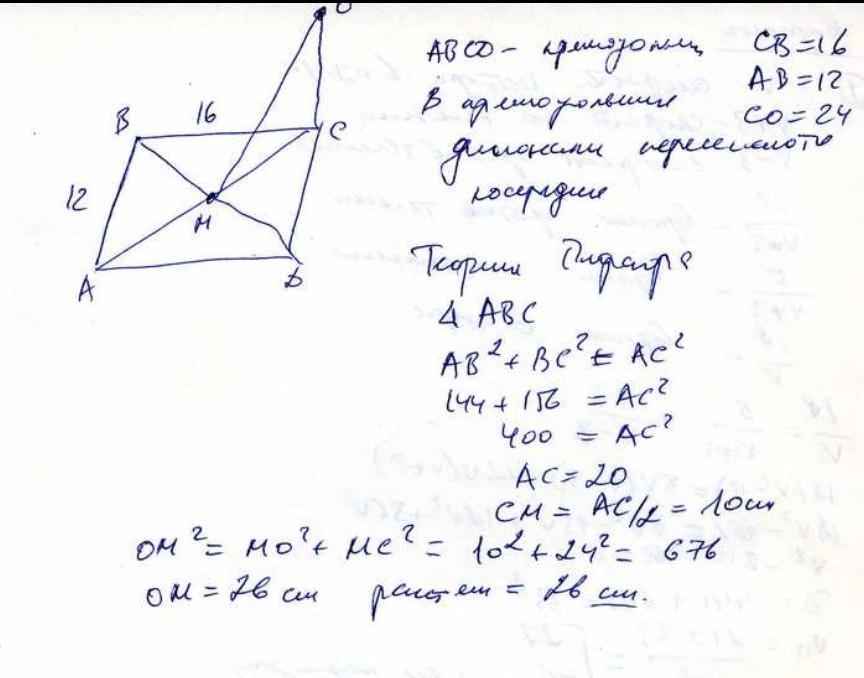 O
B 16 C
12
M
A D
ABCD - прямоугольник CB=16
В прямоугольнике AB=12
CO=24
диагонали пересекаются
посередине
Теорема Пифагора
Δ ABC
AB² + BC² = AC²
144 + 156 = AC²
400 = AC²
AC = 20
CM = AC/2 = 10 см
OM² = MO² + MC² = 10² + 24² = 676
OM = 26 см = 26 см.